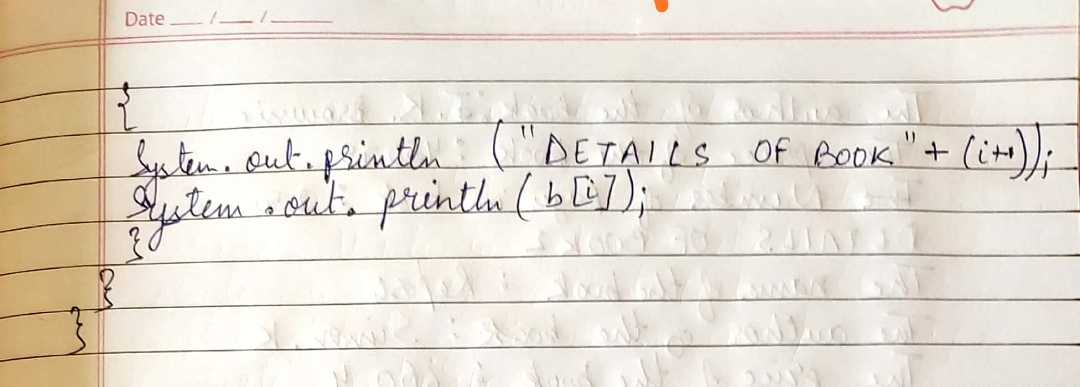 Date __/__/____
{
System.out.println ("DETAILS OF BOOK"+(i+1));
System.out.println(b[i]);
}
}
}